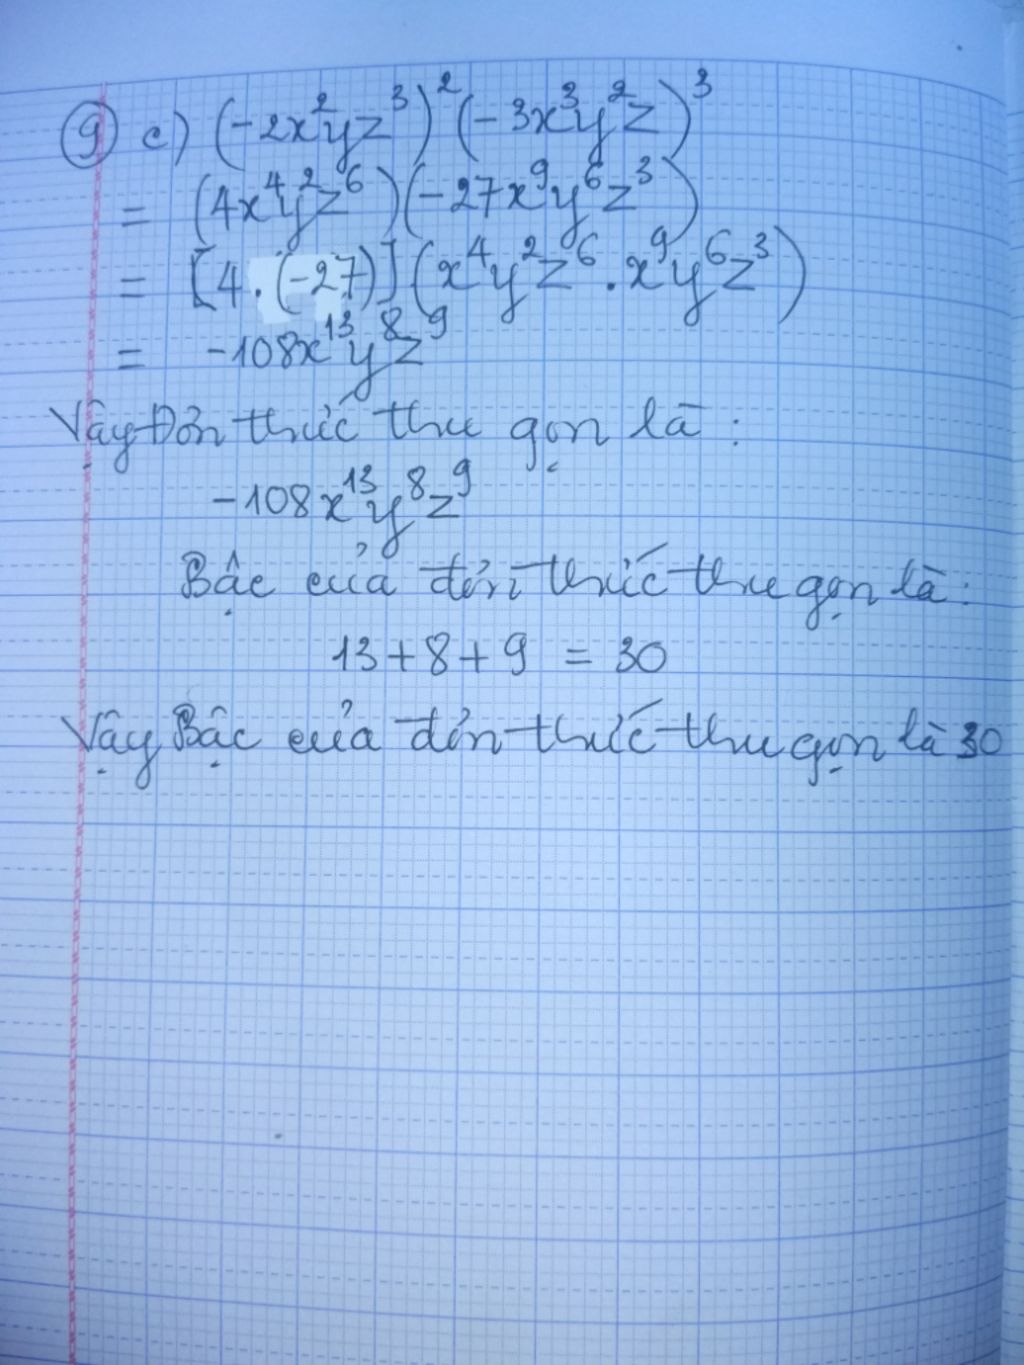 ⑨ c) (-2x²yz³)²(-3x³y²z)³
= (4x⁴y²z⁶)(-27x⁹y⁶z³)
= [4.(-27)](x⁴y²z⁶.x⁹y⁶z³)
= -108x¹³y⁸z⁹
Vậy Đơn thức thu gọn là :
-108x¹³y⁸z⁹
Bậc của đơn thức thu gọn là :
13+8+9 = 30
Vậy Bậc của đơn thức thu gọn là 30